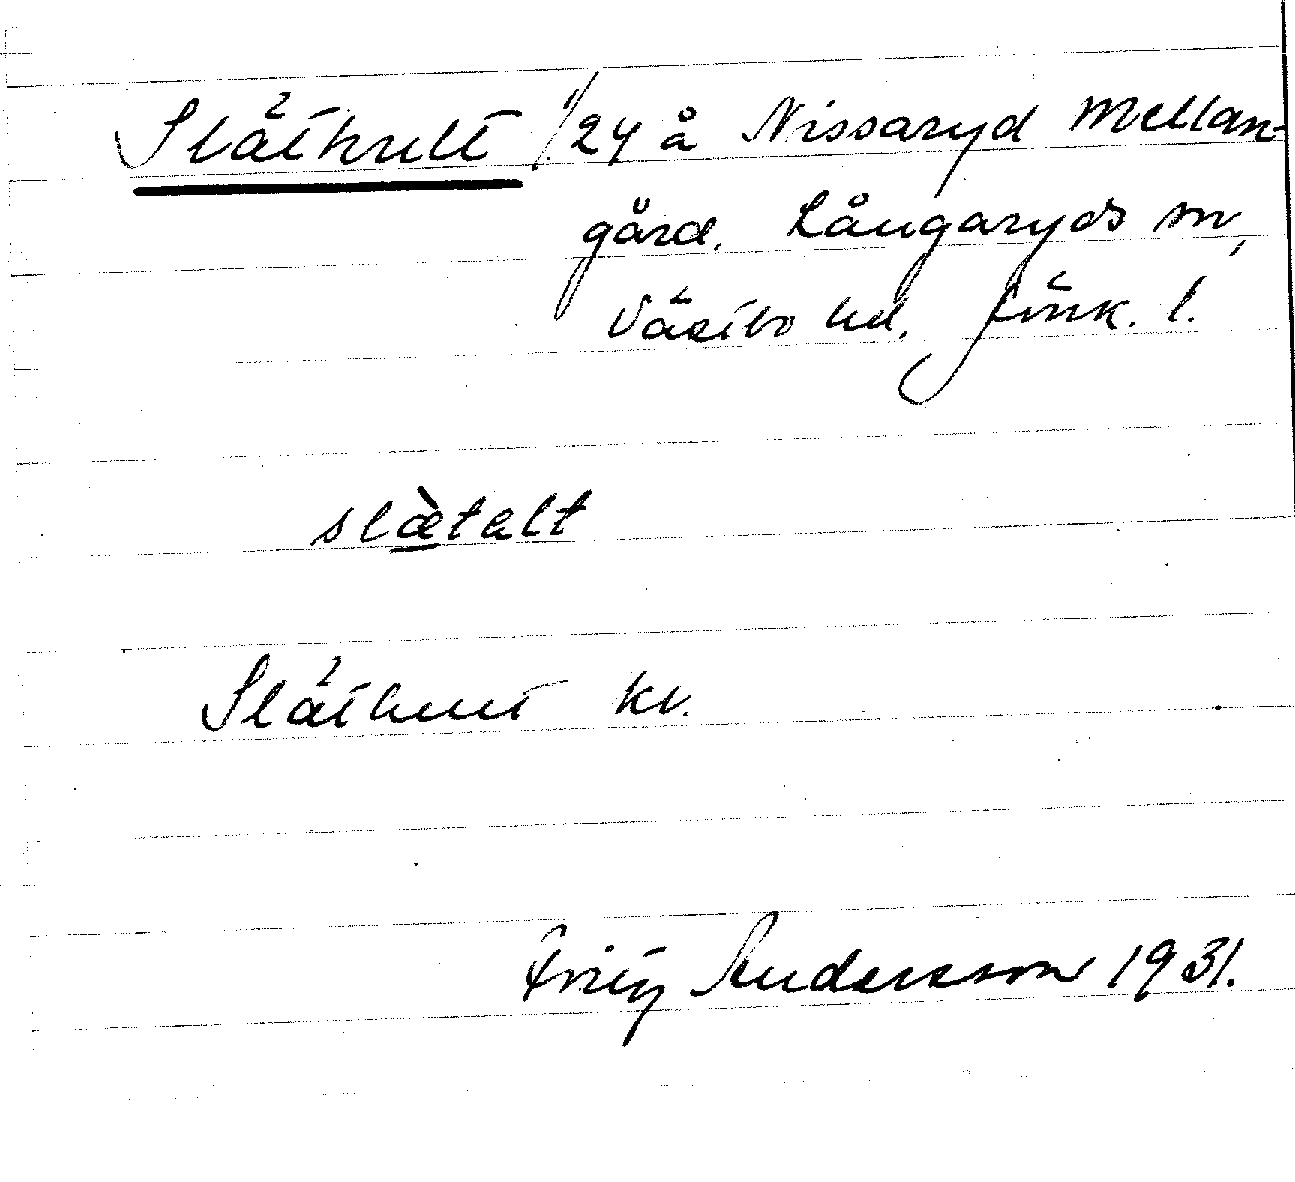 Släthult 1/24 å Nissaryd Mellan-
gård. Långaryds sn,
Västbo hd. Jönk. l.
slætalt
Släthult kv.
Fritz Andersson 1931.